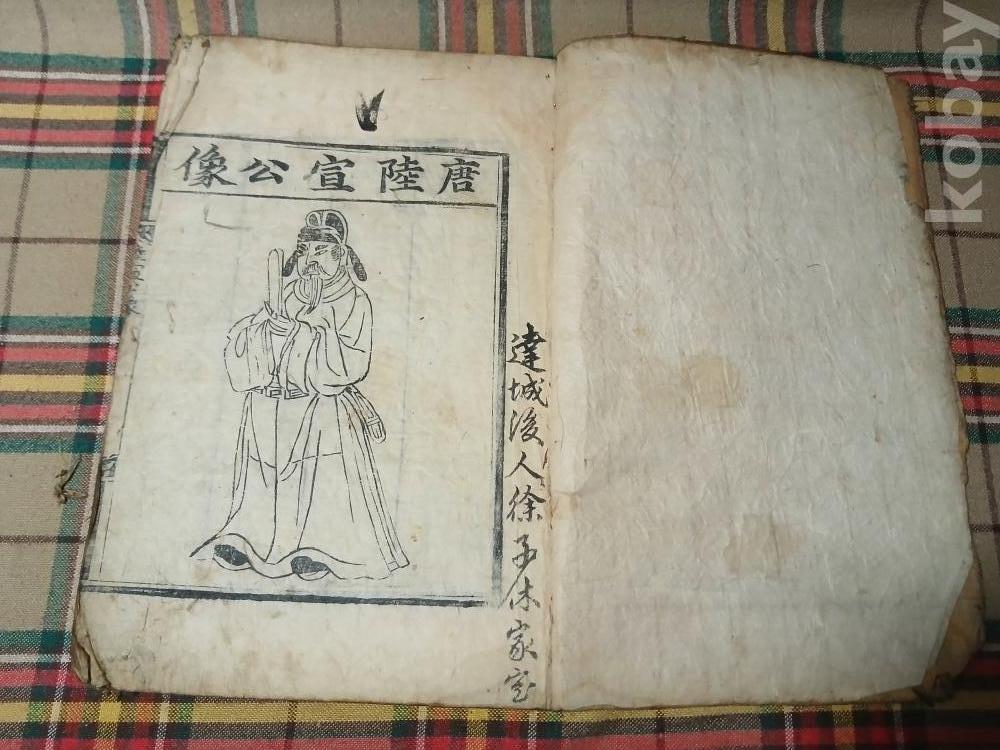 唐陸宣公像
達城後人徐子休家
kobay